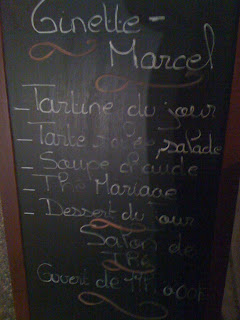 Ginette -
Marcel
- Tartine du jour
- Tarte salée, salade
- Soupe chaude
- Thé Mariage
- Dessert du jour
Salon de
Thé
Ouvert de